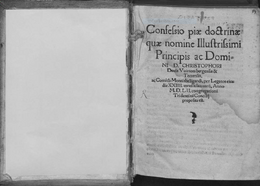 Confessio piæ doctrinæ
quæ nomine Illustrissimi
Principis ac Domi-
NI D. CHRISTOPHORI
Ducis Vuirtembergensis &
Teccensis,
ac Comitis Montisbeligardi, per Legatos eius
die XXIIII. mensis Ianuarij, Anno
M.D. LII. congregationi
Tridentini Concilij
proposita est.